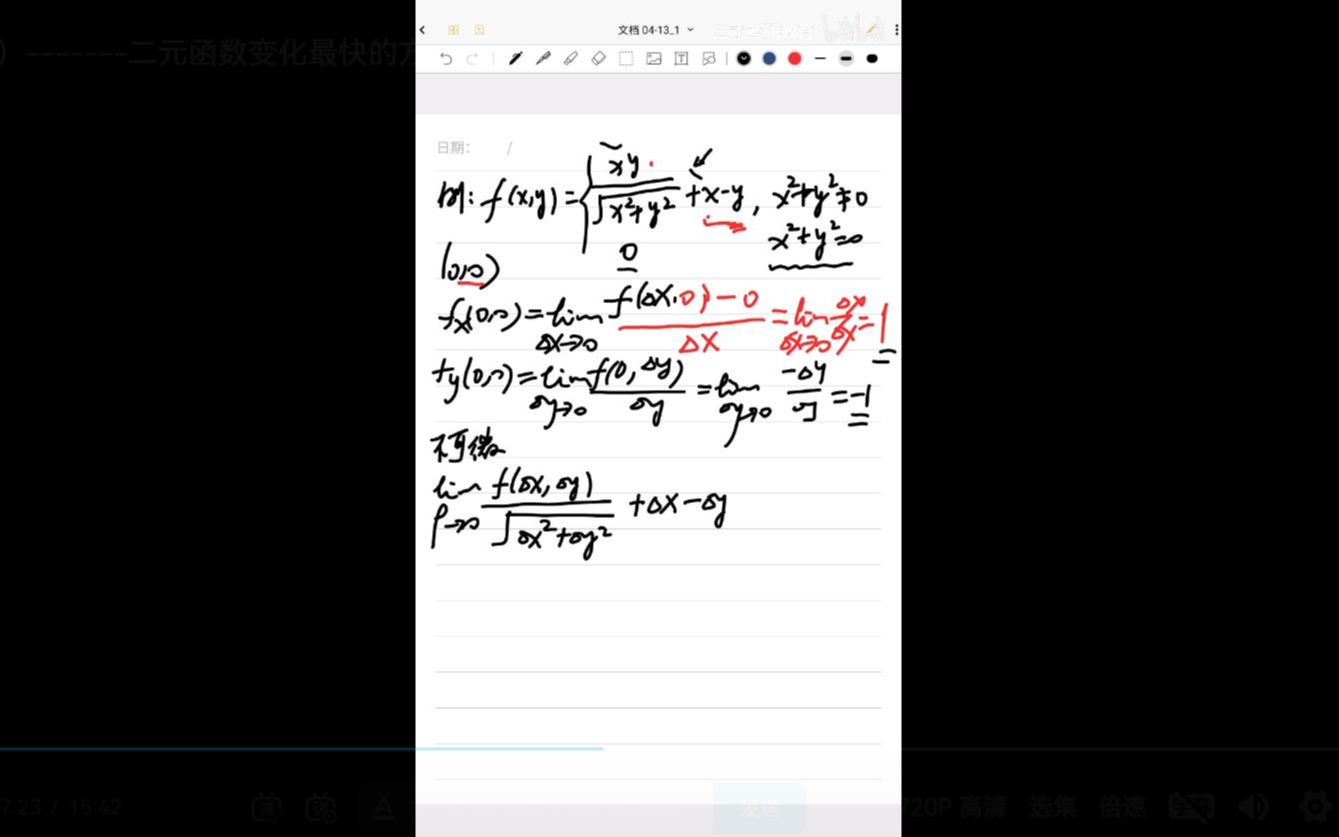 ) -------二元函数变化最快的方
文档 04-13_1
三才考研教育
bilibili
日期: /
例: f(x,y)={ xy/√(x²+y²) +x-y, x²+y²≠0
0 x²+y²=0
(0,0)
fx(0,0)=lim Δx→0 (f(Δx,0)-0)/Δx =lim Δx→0 Δx/Δx=1
fy(0,0)=lim Δy→0 f(0,Δy)/Δy =lim Δy→0 -Δy/Δy=-1
不可微
lim ρ→0 f(Δx,Δy)/√(Δx²+Δy²) +Δx-Δy
7:23 / 15:42
弹
A
发送
720P 高清 选集 倍速